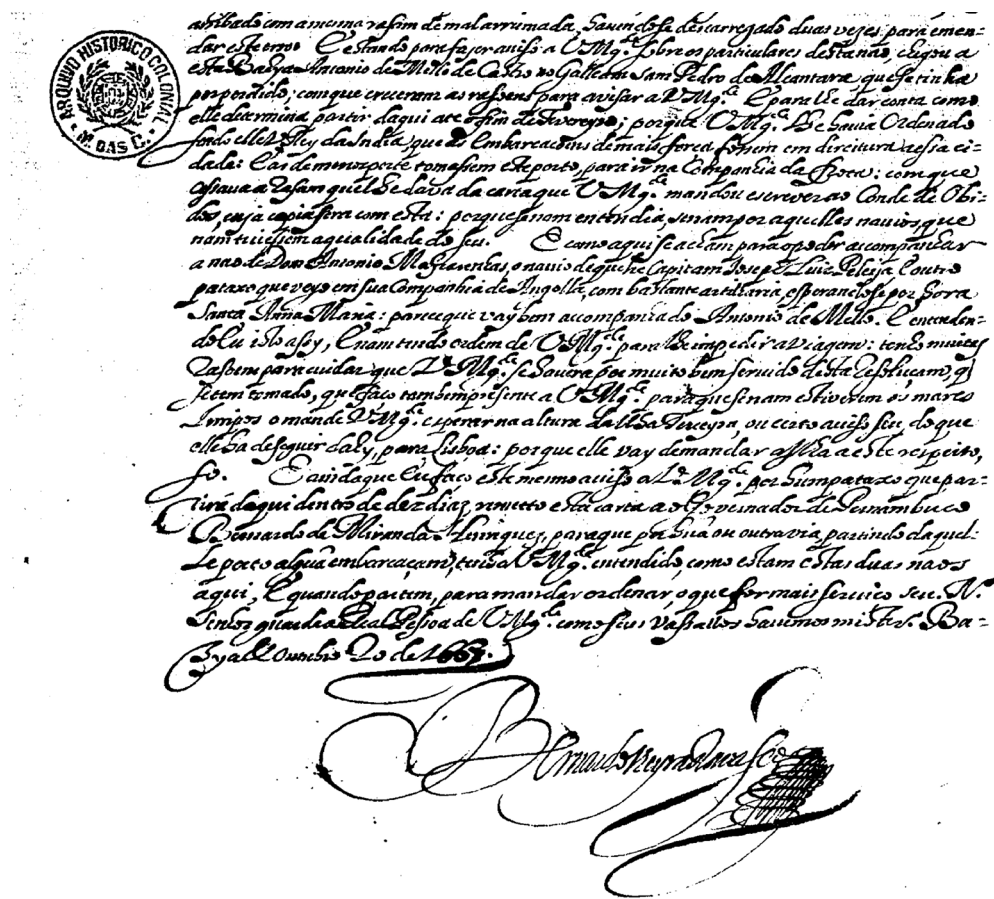 ARQUIVO HISTORICO COLONIAL
M. DAS C.
arribado com a mesma rasam de mal arrumada, havendose descarregado duas vezes para emen-
dar este erro. E estando para fazer aviso a V Mg.de sobre os particulares desta nao, chegou a
esta Bahya Antonio de Mello de Castro no Galleam Sam Pedro de Alcantara que se tinha
por perdido; com que creceram as rasoens para avisar a V Mg.de E para lhe dar conta como
elle determina partir daqui ate o fim de Fevereyro; porque V Mg.de lhe havia Ordenado
sendo elle VRey da India, que as Embarcaçoens de mais força fossem em direitura a essa ci-
dade: E as de menor porte tomassem este porto, para ir na Companhia da Frota: com que
cessava a rasam que lhe dava da carta que V Mg.de mandou escrever ao Conde de Obi-
dos, cuja copia sera com esta: porque se nam entendia, senam por aquelles navios que
nam tivessem a qualidade do seu. E como aqui se acham para o poder accompanhar
a nao de Dom Antonio Mascarenhas, o navio de que he Capitam Joseph Luiz Peleja E outro
pataxo que veyo em sua Companhia de Angolla, com bastante artilharia, esperandose por hora
Santa Anna Maria: parece que vay bem accompanhado Antonio de Mello. E entenden-
do Eu isto assy, E nam tendo ordem de V Mg.de para lhe impedir a viagem: tenho muitas
rasoens para cuidar que V Mg.de se havera por muito bem servido desta resoluçam, q
se tem tomado, que faço tambem presente a V Mg.de para que se nam estiverem os mares
limpos o mande V Mg.de esperar na altura da Ilha Terceyra, ou certo aviso seu, do que
elle ha de seguir daly, para Lisboa: porque elle vay demandar a Ilha a este respeito,
so. E ainda que Eu faço este mesmo aviso a V Mg.de por hum pataxo que par-
tirá daqui dentro de dez dias, remetto esta carta ao Governador de Pernambuco
Bernardo de Miranda Henriquez, para que por hũa ou outra via, partindo daquel-
le porto algũa embarcaçam, tenha V Mg.de entendido, como estam estas duas naos
aqui, E quando partem, para mandar ordenar, o que for mais serviço seu. N.
Senhor guarde a Real Pessoa de V Mg.de como seus Vassallos havemos mister. Ba-
hya E Outubro 20 de